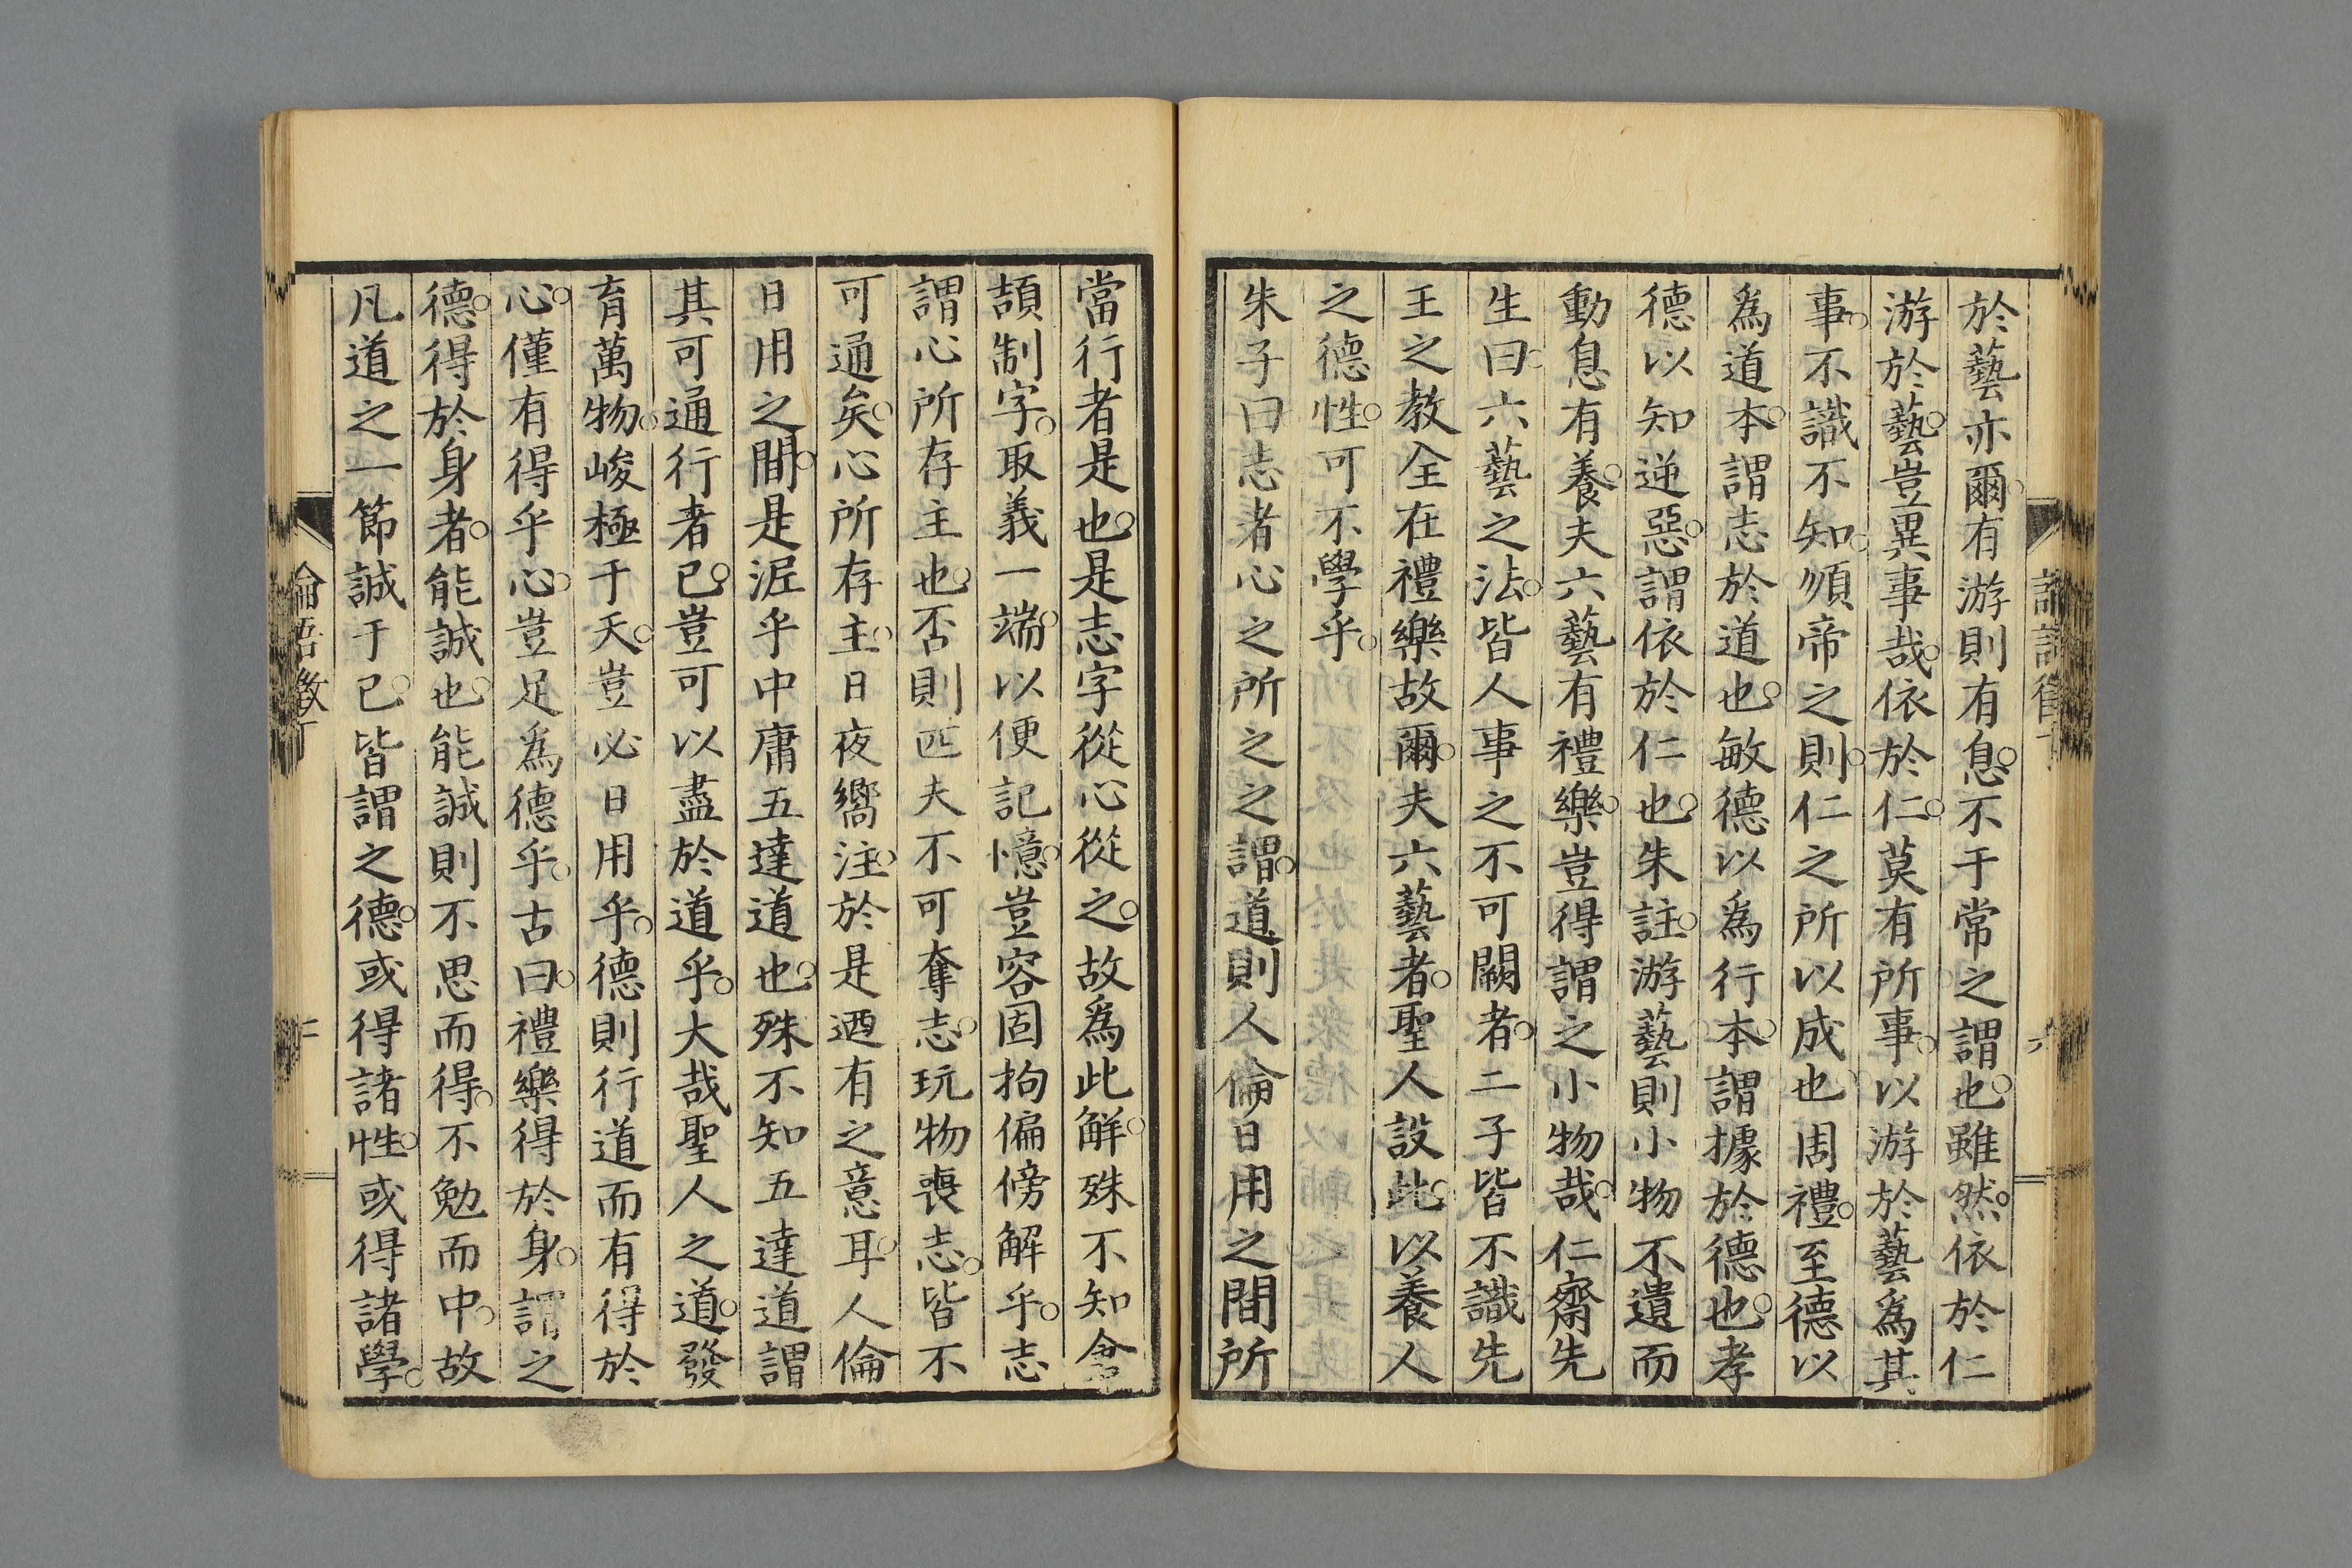 於藝亦爾有游則有息不于常之謂也雖然依於仁
游於藝豈異事哉依於仁莫有所事以游於藝爲其
事不識不知順帝之則仁之所以成也周禮至德以
爲道本謂志於道也敏德以爲行本謂據於德也孝
德以知逆惡謂依於仁也朱註游藝則小物不遺而
動息有養夫六藝有禮樂豈得謂之小物哉仁齋先
生曰六藝之法皆人事之不可闕者二子皆不識先
王之教全在禮樂故爾夫六藝者聖人設此以養人
之德性可不學乎
朱子曰志者心之所之之謂道則人倫日用之間所
當行者是也是志字從心從之故爲此解殊不知倉
頡制字取義一端以便記憶豈容固拘偏傍解乎志
謂心所存主也否則匹夫不可奪志玩物喪志皆不
可通矣心所存主日夜嚮注於是迺有之意耳人倫
日用之間是泥乎中庸五達道也殊不知五達道謂
其可通行者已豈可以盡於道乎大哉聖人之道發
育萬物峻極于天豈必日用乎德則行道而有得於
心僅有得乎心豈足爲德乎古曰禮樂得於身謂之
德得於身者能誠也能誠則不思而得不勉而中故
凡道之一節誠于已皆謂之德或得諸性或得諸學
論語徵丁